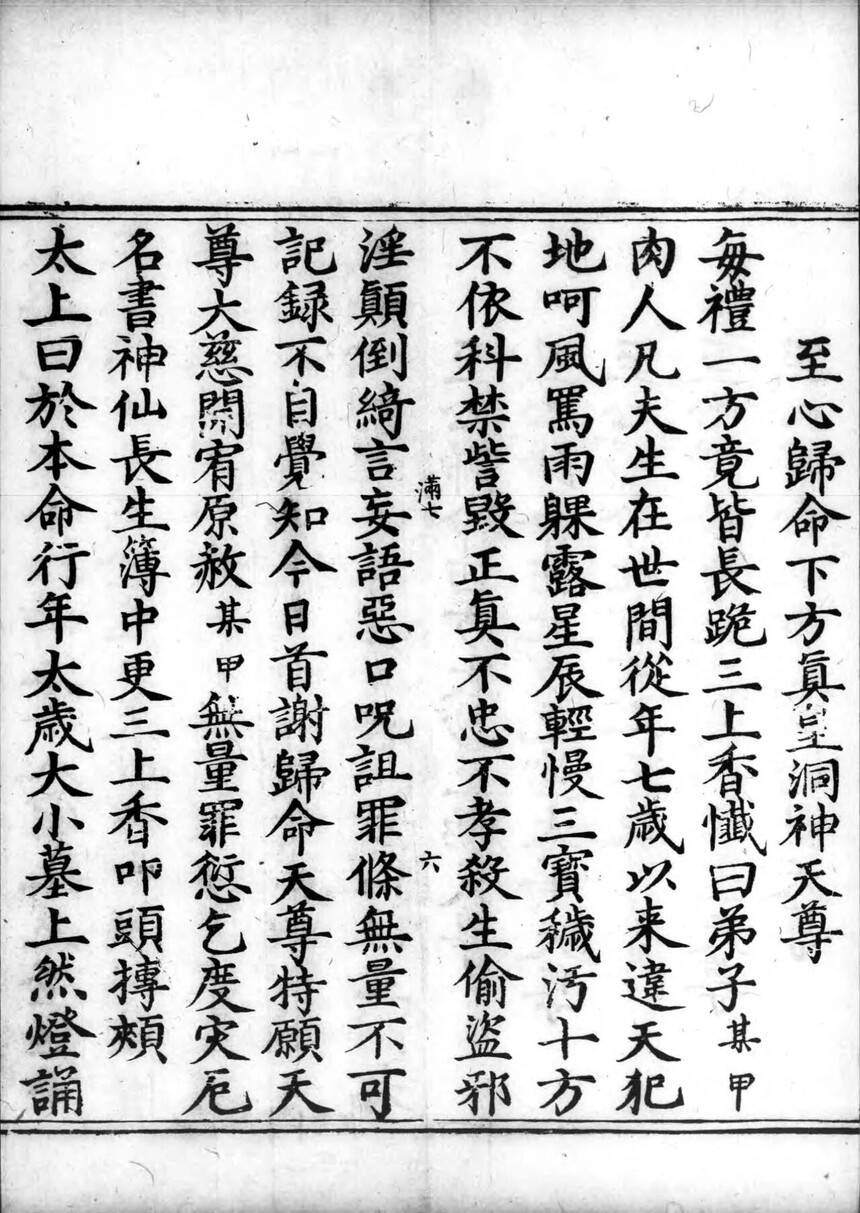 至心歸命下方眞皇洞神天尊
每禮一方竟皆長跪三上香懺曰弟子某甲
肉人凡夫生在世間從年七歲以来違天犯
地呵風罵雨躶露星辰輕慢三寶穢汚十方
不依科禁訾毀正眞不忠不孝殺生偷盜邪
滿七
六
淫顛倒綺言妄語惡口呪詛罪條無量不可
記録不自覺知今日首謝歸命天尊特願天
尊大慈開宥原赦某甲無量罪愆乞度灾厄
名書神仙長生簿中更三上香叩頭摶頰
太上曰於本命行年太歲大小墓上然燈誦